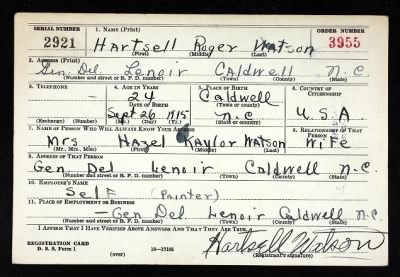 SERIAL NUMBER 1. NAME (Print) ORDER NUMBER
2921 Hartsell Roger Watson 3955
(First) (Middle) (Last)
2. ADDRESS (Print)
Gen. Del. Lenoir Caldwell N.C.
(Number and street or R. F. D. number) (Town) (County) (State)
3. TELEPHONE 4. AGE IN YEARS 5. PLACE OF BIRTH 6. COUNTRY OF CITIZENSHIP
24 Caldwell
DATE OF BIRTH (Town or county)
Sept 26 1915 N.C U.S.A.
(Exchange) (Number) (Mo.) (Day) (Yr.) (State or country)
7. NAME OF PERSON WHO WILL ALWAYS KNOW YOUR ADDRESS 8. RELATIONSHIP OF THAT PERSON
Mrs Hazel Kaylor Watson Wife
(Mr., Mrs., Miss) (First) (Middle) (Last)
9. ADDRESS OF THAT PERSON
Gen Del Lenoir Caldwell N.C.
(Number and street or R. F. D. number) (Town) (County) (State)
10. EMPLOYER'S NAME
Self (Painter)
11. PLACE OF EMPLOYMENT OR BUSINESS
Gen Del Lenoir Caldwell N.C.
(Number and street or R. F. D. number) (Town) (County) (State)
I AFFIRM THAT I HAVE VERIFIED ABOVE ANSWERS AND THAT THEY ARE TRUE.
REGISTRATION CARD
D. S. S. Form 1 16-17105 Hartsell Watson
(Registrant's signature)